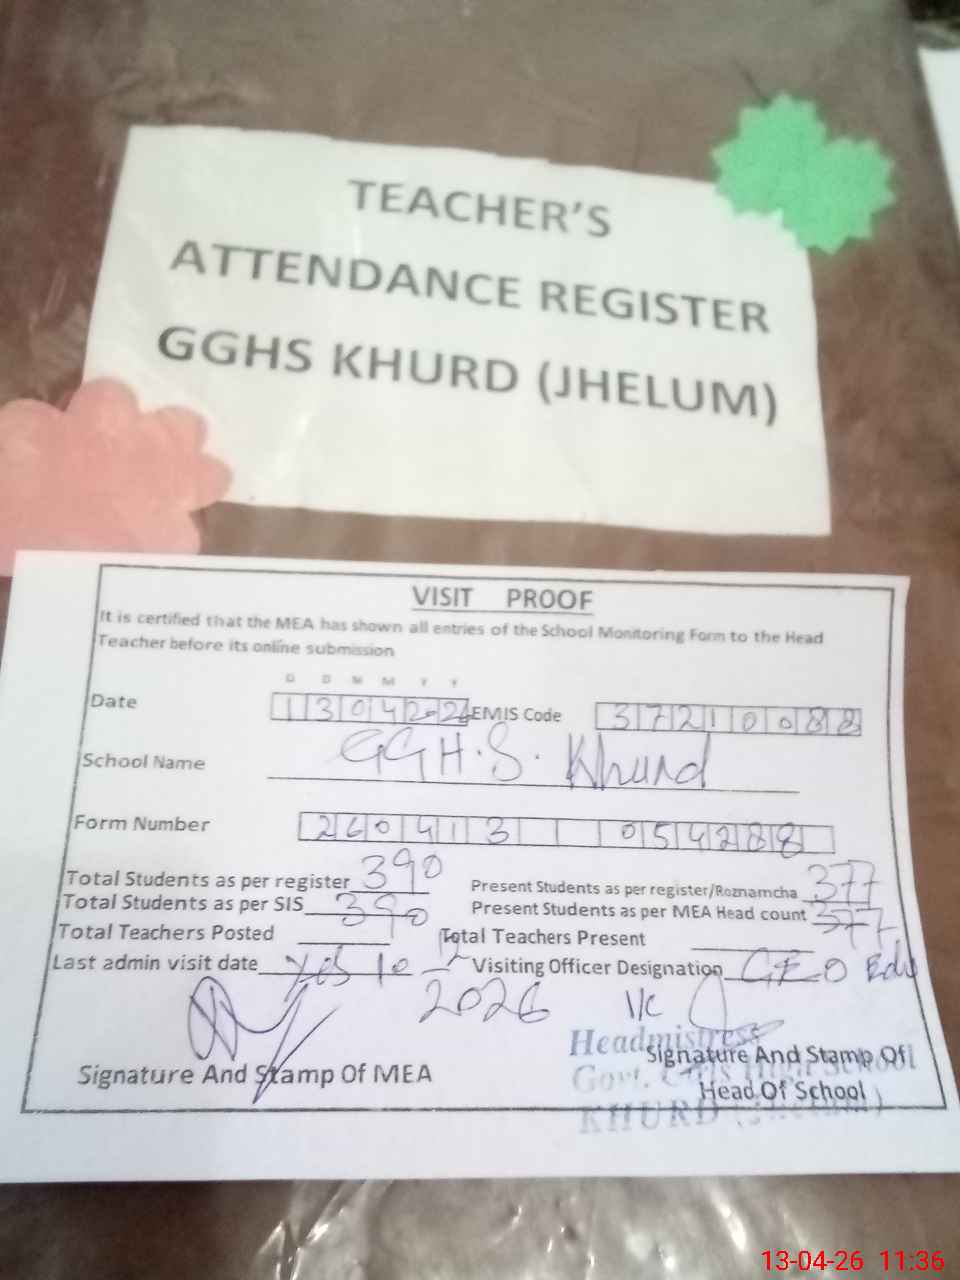 TEACHER'S
ATTENDANCE REGISTER
GGHS KHURD (JHELUM)
VISIT PROOF
It is certified that the MEA has shown all entries of the School Monitoring Form to the Head
Teacher before its online submission
D D M M Y Y
Date 130426 EMIS Code 37210088
School Name GGH.S. Khurd
Form Number 260413 054288
Total Students as per register 390 Present Students as per register/Roznamcha 377
Total Students as per SIS 390 Present Students as per MEA Head count 377
Total Teachers Posted Total Teachers Present
Last admin visit date Yes 10-2 Visiting Officer Designation CEO Edu
2026 I/C
Headmistress
Signature And Stamp Of MEA Signature And Stamp Of
Govt. Girls High School
Head Of School
KHURD (Jhelum)
13-04-26 11:36